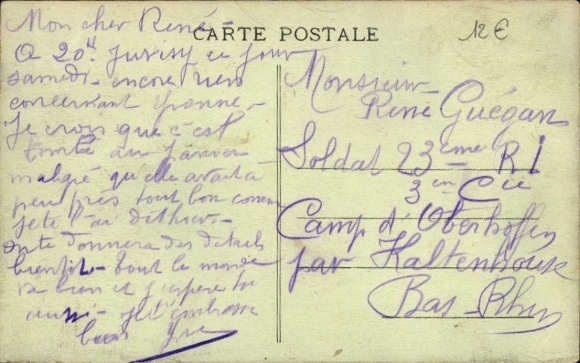 CARTE POSTALE
12€
Mon cher René -
A 20h Juvisy ce jour
samedi - encore rien
concernant Yvonne -
Je crois que c'est
tombé au
malgré qu'elle avait à
peu près tout bon comme
je te l'ai dit hier -
on te donnera des détails
bientôt - tout le monde
va bien et j'espère toi
aussi - je t'embrasse
bien
Monsieur
René Guégan
Soldat 23ème R I
3em Cie
Camp d'Oberhoffen
par Kaltenhouse
Bas-Rhin